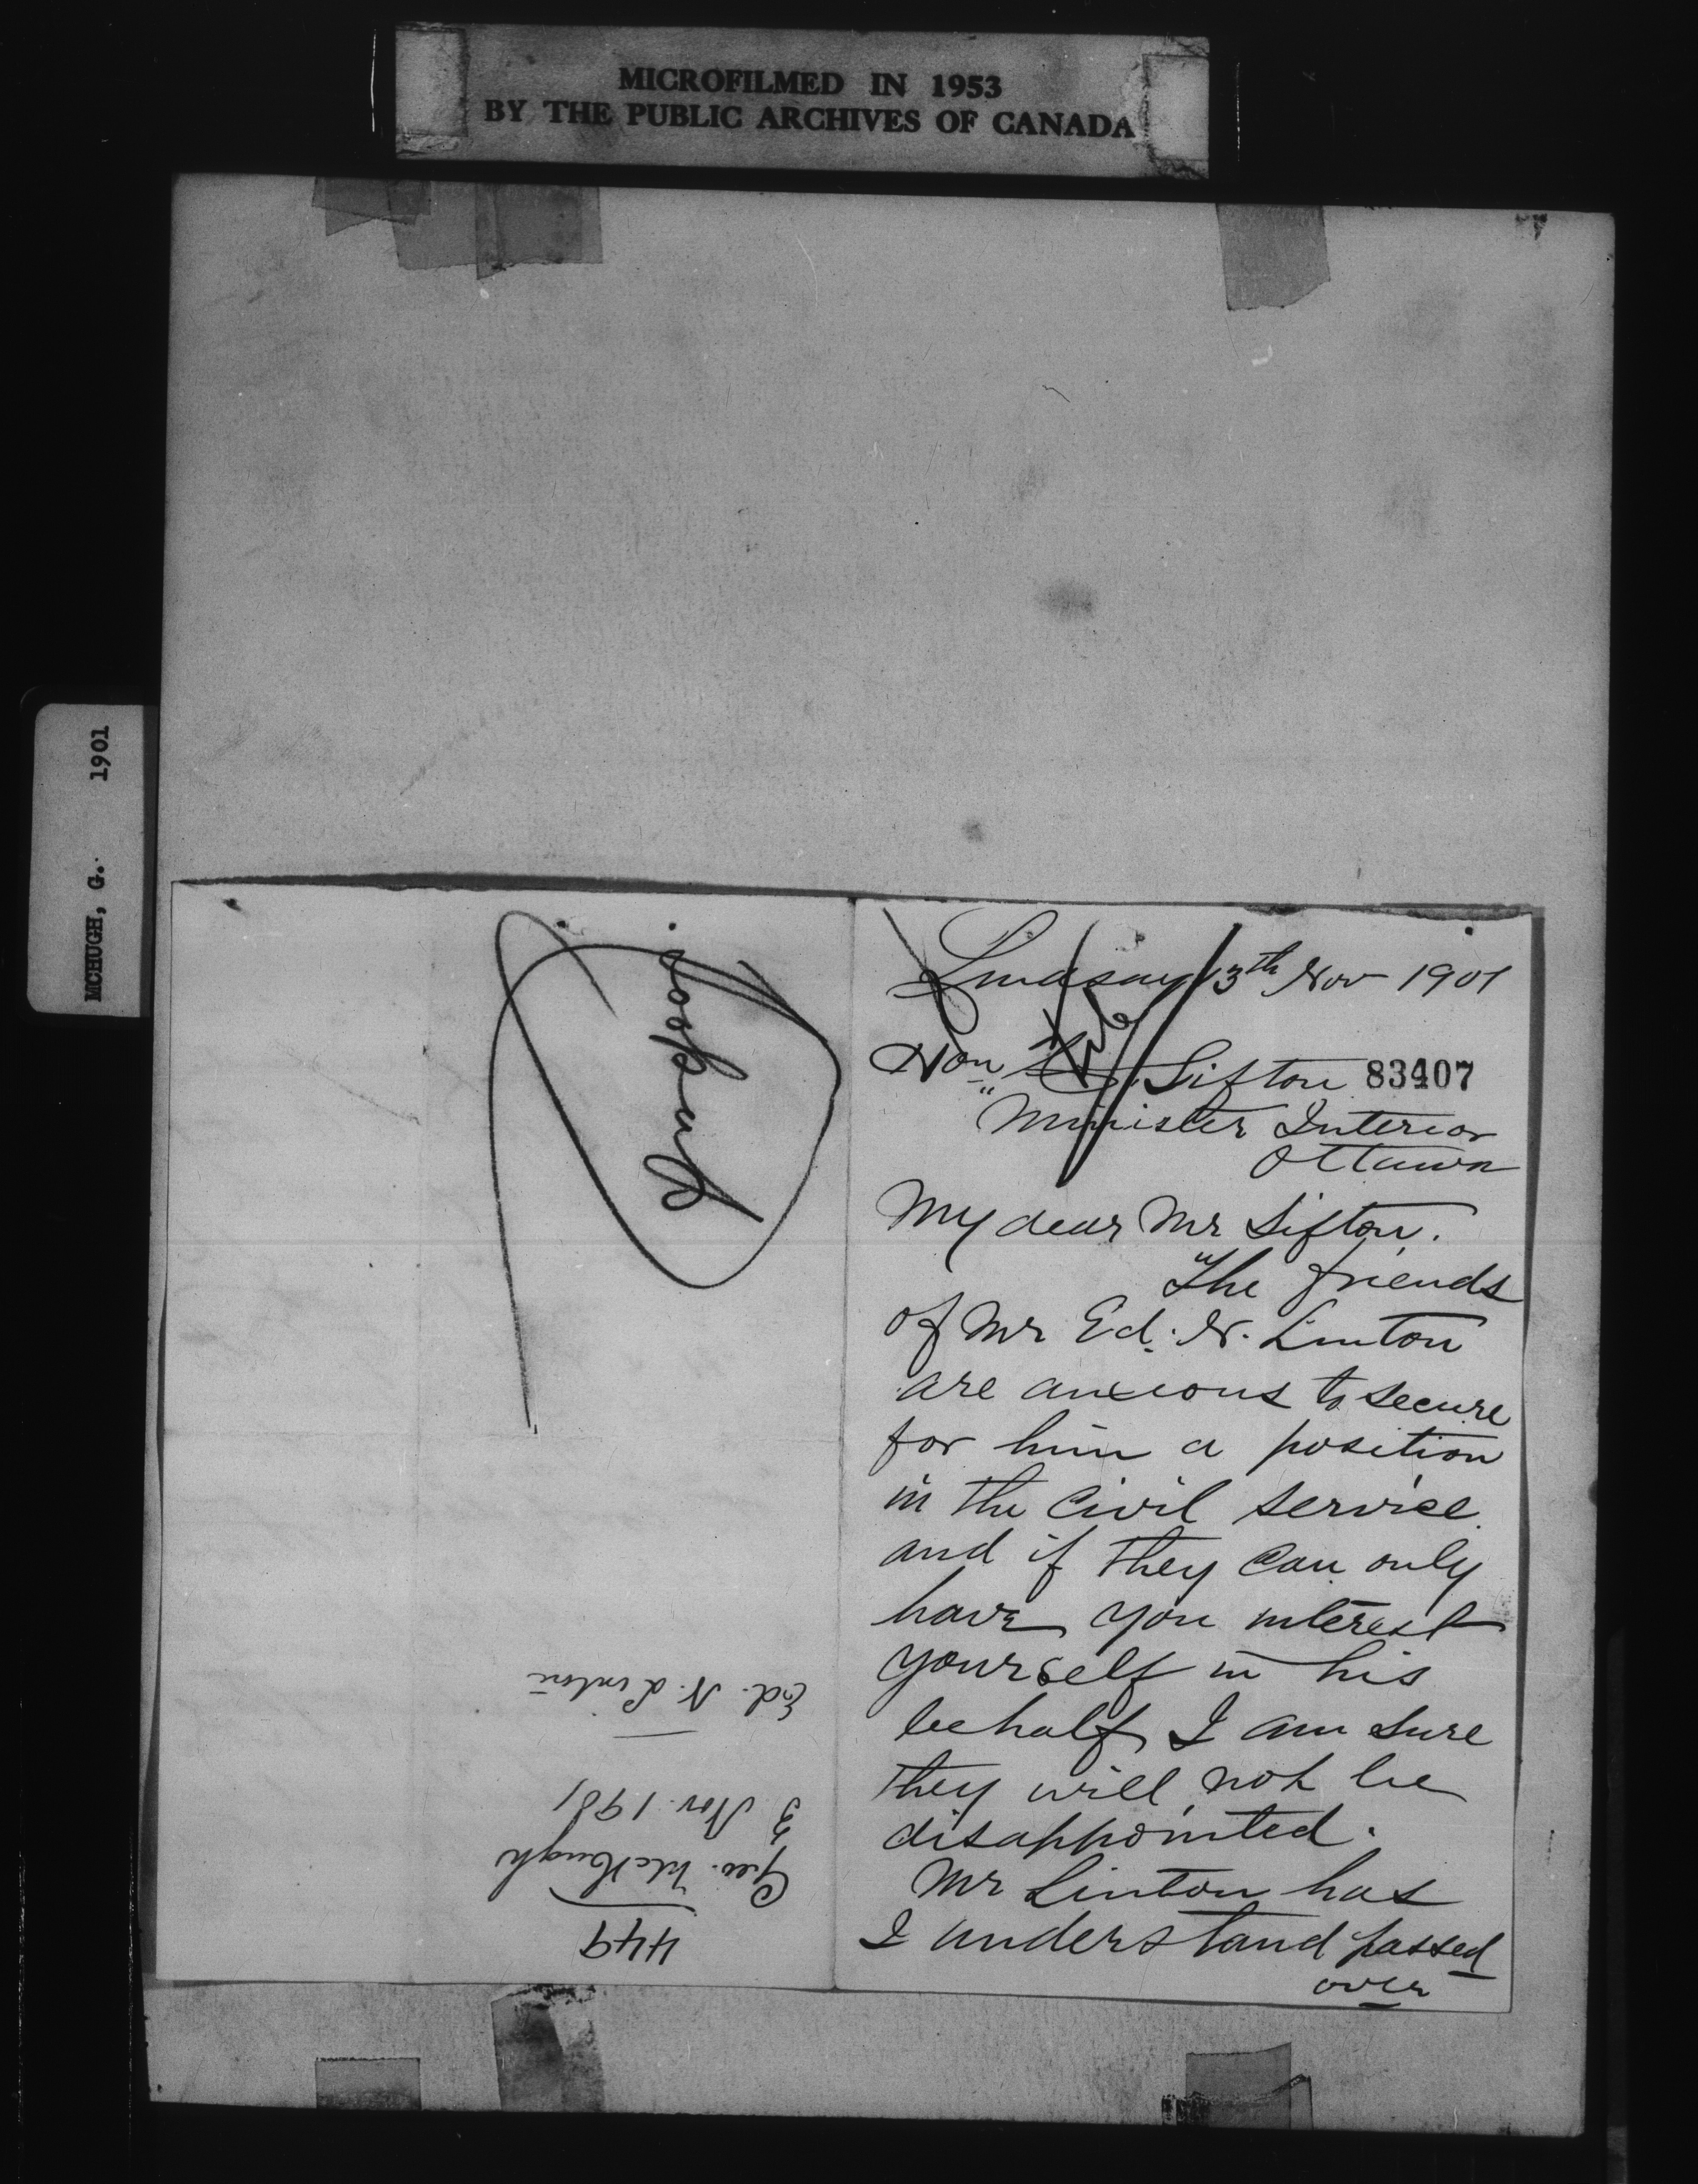 MICROFILMED IN 1953
BY THE PUBLIC ARCHIVES OF CANADA
MCHUGH, G. 1901
Lindsay 3th Nov 1901
Hon Sifton 83407
Minister Interior
Ottawa
My dear Mr Sifton.
The friends
of Mr Ed. N. Linton
are anxious to secure
for him a position
in the Civil service
and if they can only
have you interest
yourself in his
behalf I am sure
they will not be
disappointed.
Mr Linton has
I understand passed
over
449
Geo. McHugh
3 Nov. 1901
Ed. N. Linton